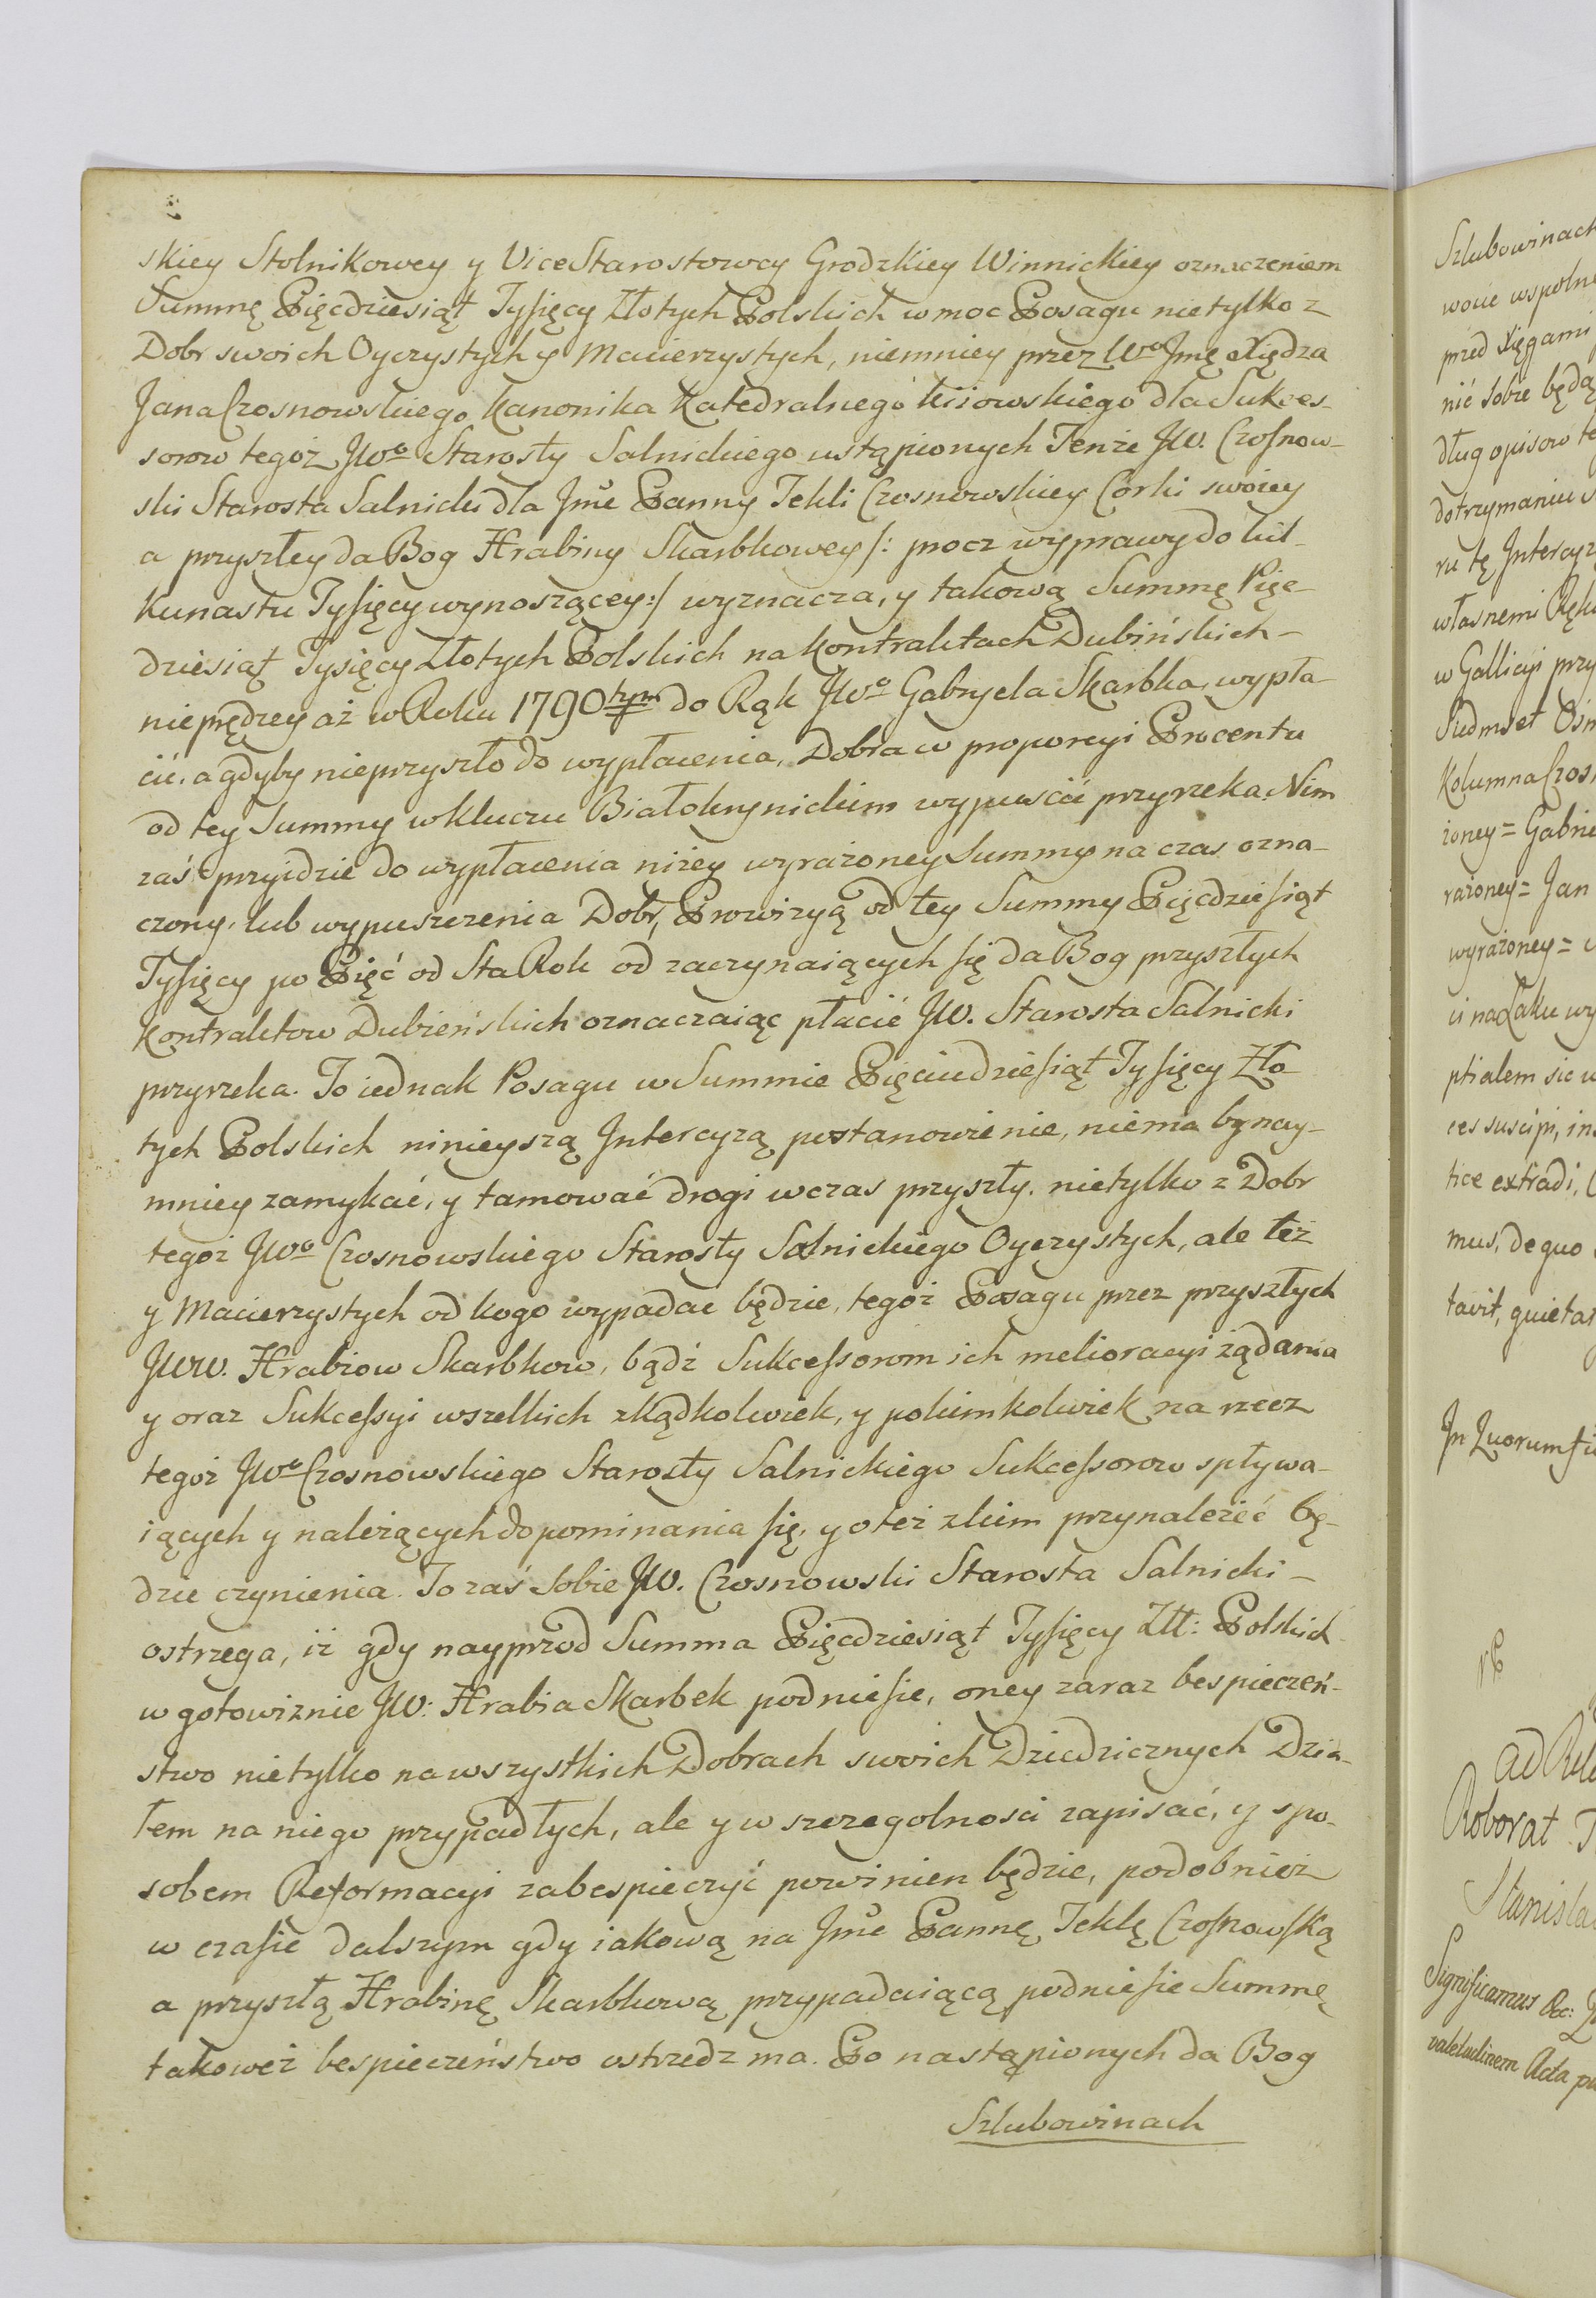 skiey Stolnikowey y ViceStarostowey Grodzkiey Winnickiey oznaczeniem
Summę Pięcdziesiąt Tysięcy Złotych Polskich w moc Posagu nietylko z
Dobr swoich Oyczystych y Macierzystych, niemniey przez Wo Jmę Xiędza
Jana Czosnowskiego Kanonika Katedralnego Kiiowskiego dla Sukces-
sorow tegoż JWo Starosty Salnickiego ustąpionych Tenże JW. Czosnow-
ski Starosta Salnicki dla Jme Panny Tekli Czosnowskiey Corki swoiey
a przyszłey da Bog Hrabiny Skarbkowey /: procz wyprawy do kil-
kunastu Tysięcy wynoszącey :/ wyznacza, y takową Summę Pięc-
dziesiąt Tysięcy Złotych Polskich na Kontraktach Dubińskich -
nieprędzey aż w Roku 1790tym do Rąk JWo Gabryela Skarbka, wypła-
cić, a gdyby nieprzyszło do wypłacenia, Dobra w proporcyi Procentu
od tey Summy w kluczu Białokrynickim wypuscić przyrzeka. Nim
zaś przyidzie do wypłacenia niżey wyrażoney Summy na czas ozna-
czony, lub wypuszczenia Dobr, Prowizyą od tey Summy Pięcdziesiąt
Tysięcy po Pięć od Sta Rok od zaczynaiących się da Bog przyszłych
Kontraktow Dubieńskich oznaczaiąc płacić JW. Starosta Salnicki
przyrzeka. To iednak Posagu w Summie Pięciudziesiąt Tysięcy Zło-
tych Polskich ninieyszą Intercyzą postanowienie, niema bynay-
mniey zamykać, y tamować drogi w czas przyszły, nietylko z Dobr
tegoż JWo Czosnowskiego Starosty Salnickiego Oyczystych, ale też
y Macierzystych od kogo wypadac będzie, tegoż Posagu przez przyszłych
JWW. Hrabiow Skarbkow, bądź Sukcessorom ich melioracyi żądania
y oraz Sukcessyi wszelkich zkądkolwiek, y pokimkolwiek na rzecz
tegoż JWo Czosnowskiego Starosty Salnickiego Sukcessorow spływa-
iących y należących dopominania się, y oteż zkim przynależeć bę-
dzie czynienia. To zaś sobie JW. Czosnowski Starosta Salnicki -
ostrzega, iż gdy nayprzod Summa Pięcdziesiąt Tysięcy Złł: Polskich
w gotowiznie JW: Hrabia Skarbek podniesie, oney zaraz bespieczeń-
stwo nietylko na wszystkich Dobrach swoich Dziedzicznych Dzia-
łem na niego przypadłych, ale y w szczegolnosci zapisać, y spo-
sobem Reformacyi zabespieczyć powinien będzie, podobnież
w czasie dalszym gdy iakową na Jme Pannę Teklę Czosnowską
a przyszłą Hrabinę Skarbkową przypadaiącą podniesie Summę
takoweż bespieczeństwo ostrzedz ma. Po nastąpionych da Bog
Szlubowinach
Szlubowinach
przed Xięgami
nić sobie będą
dług opisow
dotrzymaniu
ru tę Intercyz
własnemi Ręk
w Gallicyi przy
Siedmset Osm
Kolumna Czos
żoney = Gabrie
rażoney = Jan
wyrażoney =
ptialem sic
ces suscipi, in
tice extradi,
mus, de quo
tavit, quietat
In Quorum fi
ad Rela
Roborat
Stanisla
Significamus
valetudinem Acta